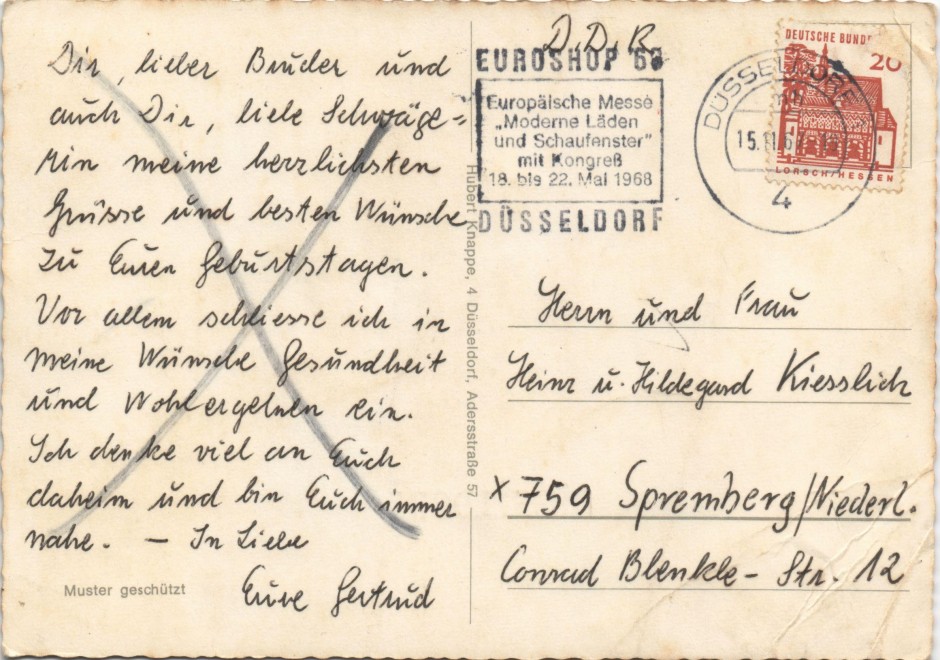 Dir, lieber Bruder und
auch Dir, liebe Schwäge=
rin meine herzlichsten
Grüsse und besten Wünsche
zu Euren Geburtstagen.
Vor allem schliesse ich in
meine Wünsche Gesundheit
und Wohlergehen ein.
Ich denke viel an Euch
daheim und bin Euch immer
nahe. – In Liebe
Eure Gertrud
Muster geschützt
Hubert Knappe, 4 Düsseldorf, Adersstraße 57
D.D.R
EUROSHOP 68
Europäische Messe
„Moderne Läden
und Schaufenster"
mit Kongreß
18. bis 22. Mai 1968
DÜSSELDORF
DÜSSELDORF
15.11.6
4
DEUTSCHE BUND
20
LORSCH/HESSEN
Herrn und Frau
Heinz u. Hildegard Kiesslich
x 759 Spremberg/Niederl.
Conrad Blenkle-Str. 12